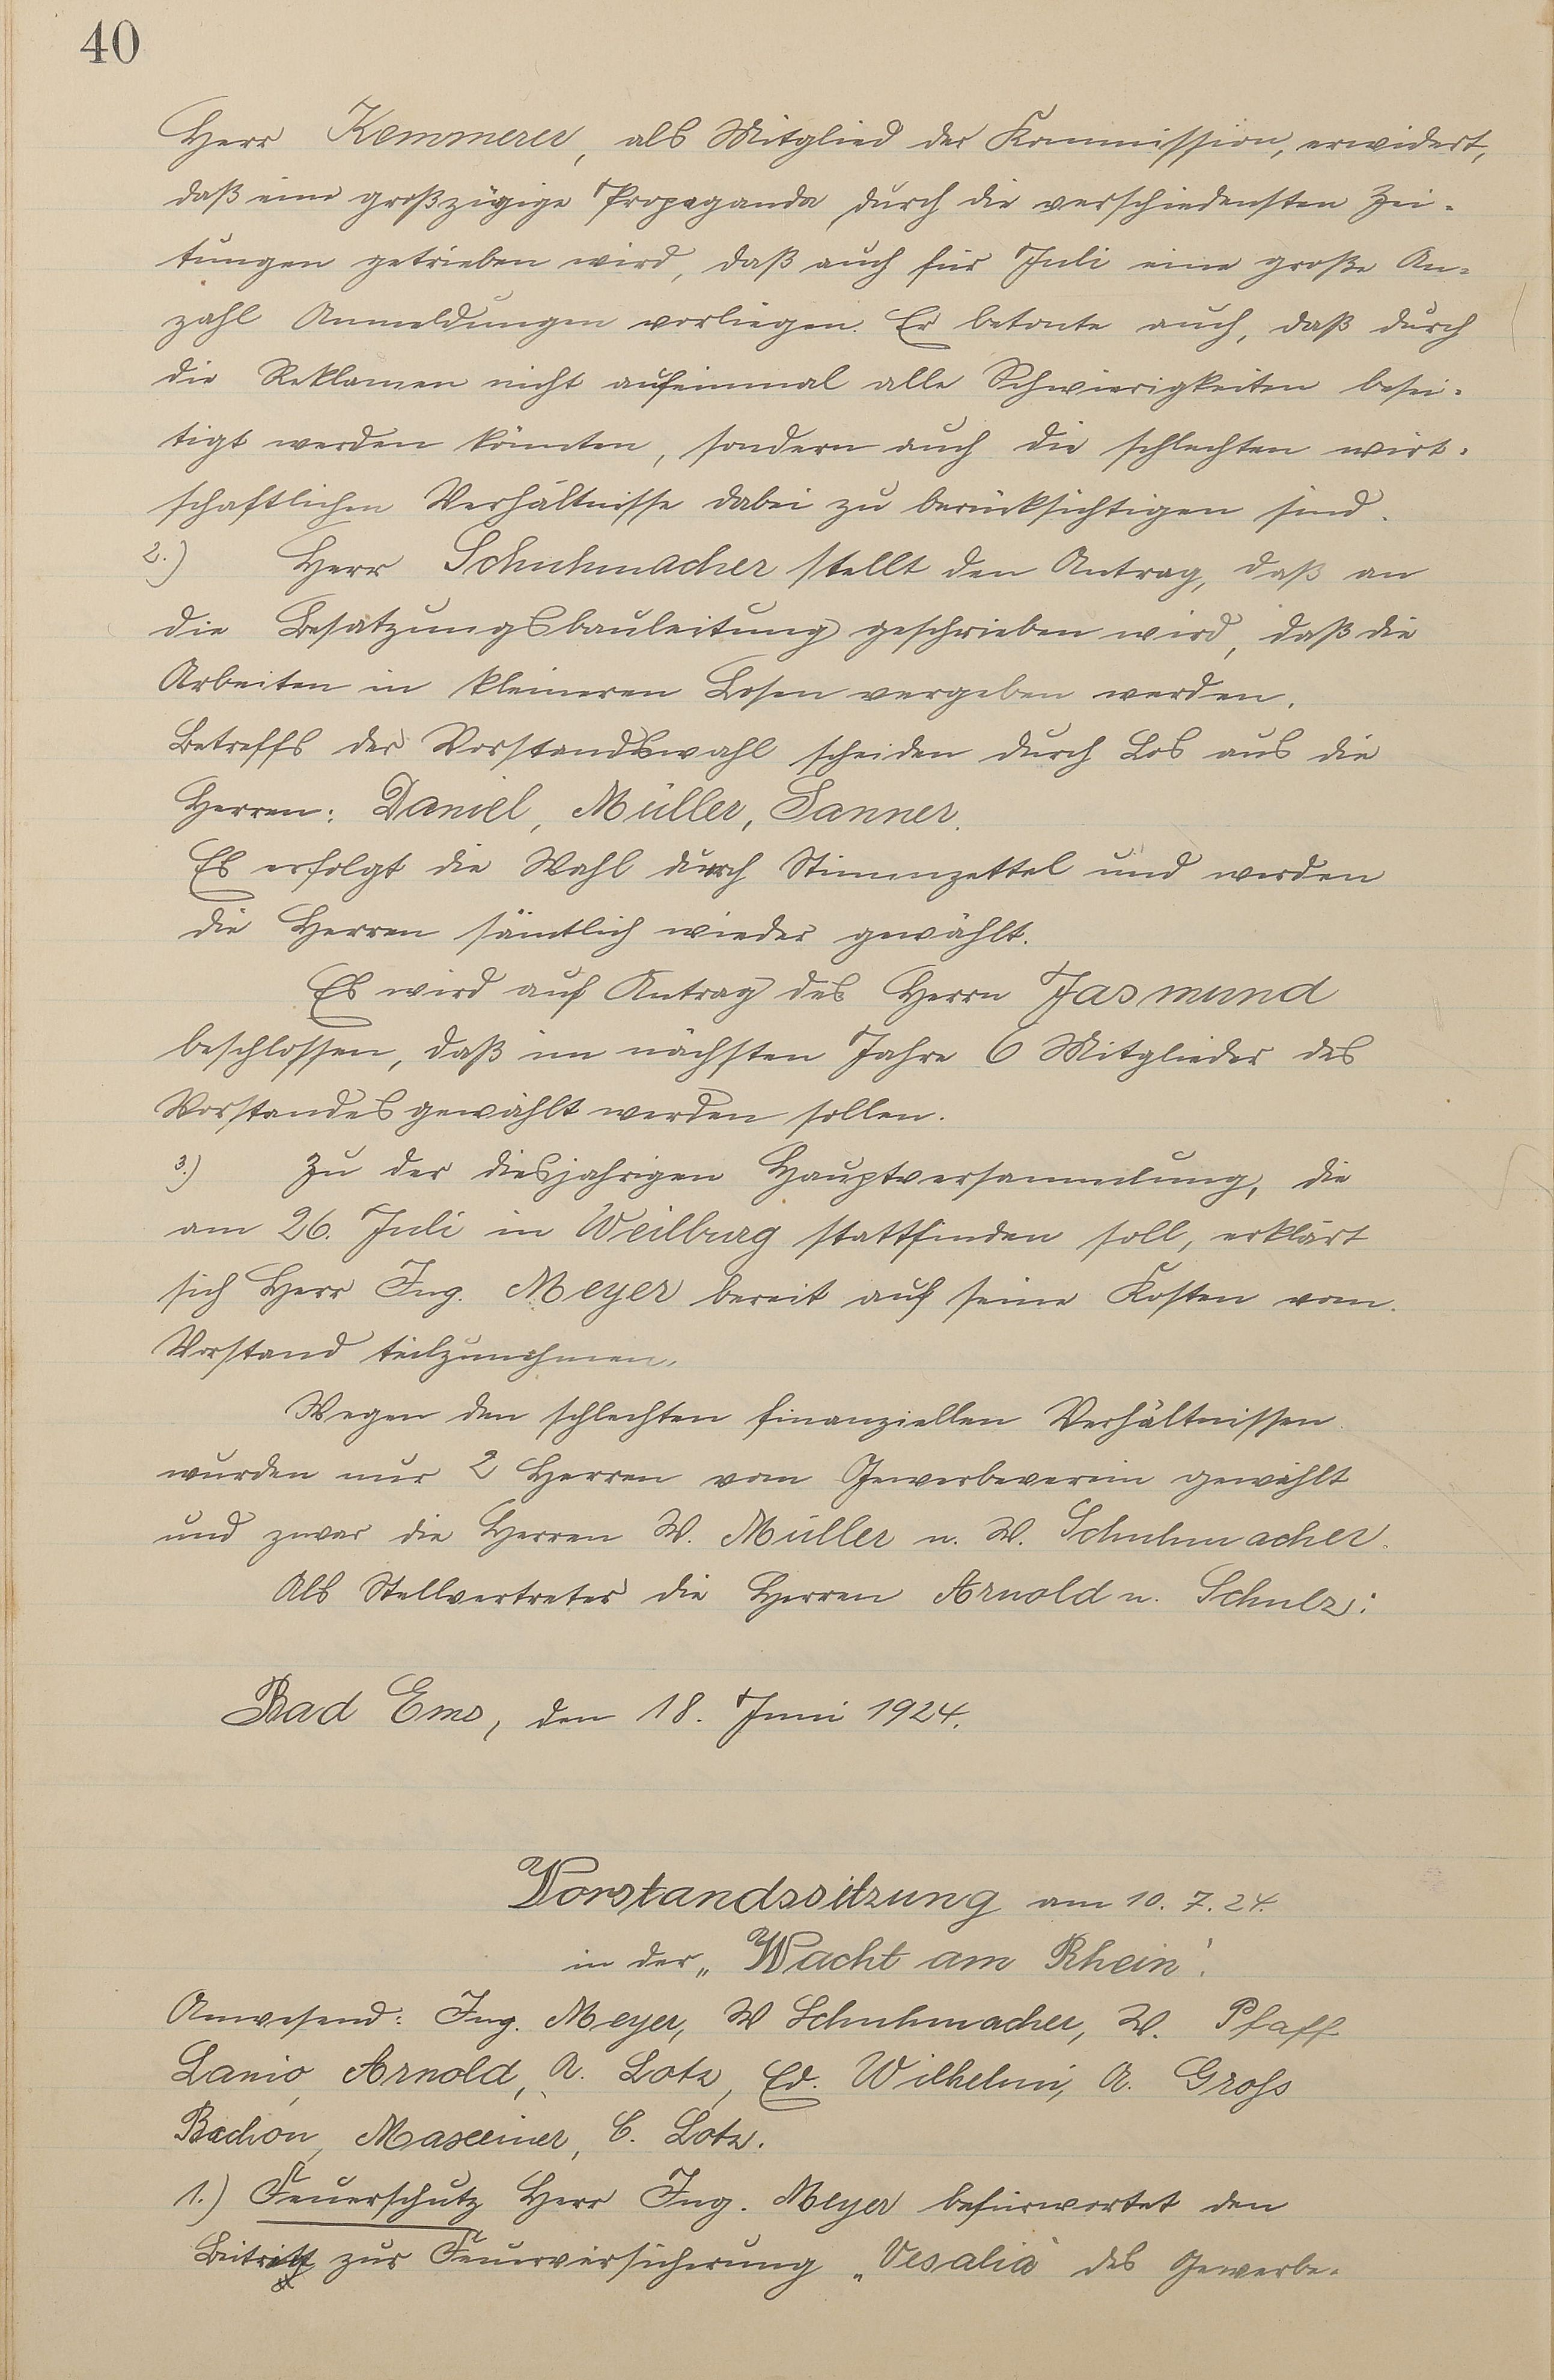 40
Herr Kemmerer, als Mitglied der Kommission, erwidert,
daß eine großzügige Propaganda durch die verschiedensten Zei-
tungen getrieben wird, daß auch für Juli eine große An-
zahl Anmeldungen vorliegen. Er betonte auch, daß durch
die Reklamen nicht aufeinmal alle Schwierigkeiten besei-
tigt werden könnten, sondern auch die schlechten wirt-
schaftlichen Verhältnisse dabei zu berücksichtigen sind.
2.) Herr Schuhmacher stellt den Antrag, daß an
die Besatzungsbauleitung geschrieben wird, daß die
Arbeiten in kleineren Losen vergeben werden.
Betreffs der Vorstandswahl scheiden durch Los aus die
Herren: Daniel, Müller, Sanner.
Es erfolgt die Wahl durch Stimmzettel und werden
die Herren sämtlich wieder gewählt.
Es wird auf Antrag des Herrn Jasmund
beschlossen, daß im nächsten Jahre 6 Mitglieder des
Vorstandes gewählt werden sollen.
3.) Zu der diesjahrigen Hauptversammlung, die
am 26. Juli in Weilburg stattfinden soll, erklärt
sich Herr Ing. Meyer bereit auf seine Kosten vom
Vorstand teilzunehmen.
Wegen den schlechten finanziellen Verhältnissen
wurden nur 2 Herren vom Gewerbeverein gewählt
und zwar die Herren W. Müller u. W. Schuhmacher.
Als Stellvertreter die Herren Arnold u. Schulz.
Bad Ems, den 18. Juni 1924.
Vorstandssitzung am 10. 7. 24.
in der „Wacht am Rhein".
Anwesend: Ing. Meyer, W Schuhmacher, W. Pfaff
Lanio, Arnold, A. Lotz, Ed. Wilhelmi, A. Groß
Bachon, Maxeiner, C. Lotz.
1.) Feuerschutz Herr Ing. Meyer befürwortet den
Beitritt zur Feuerversicherung „Vesalia" des Gewerbe-